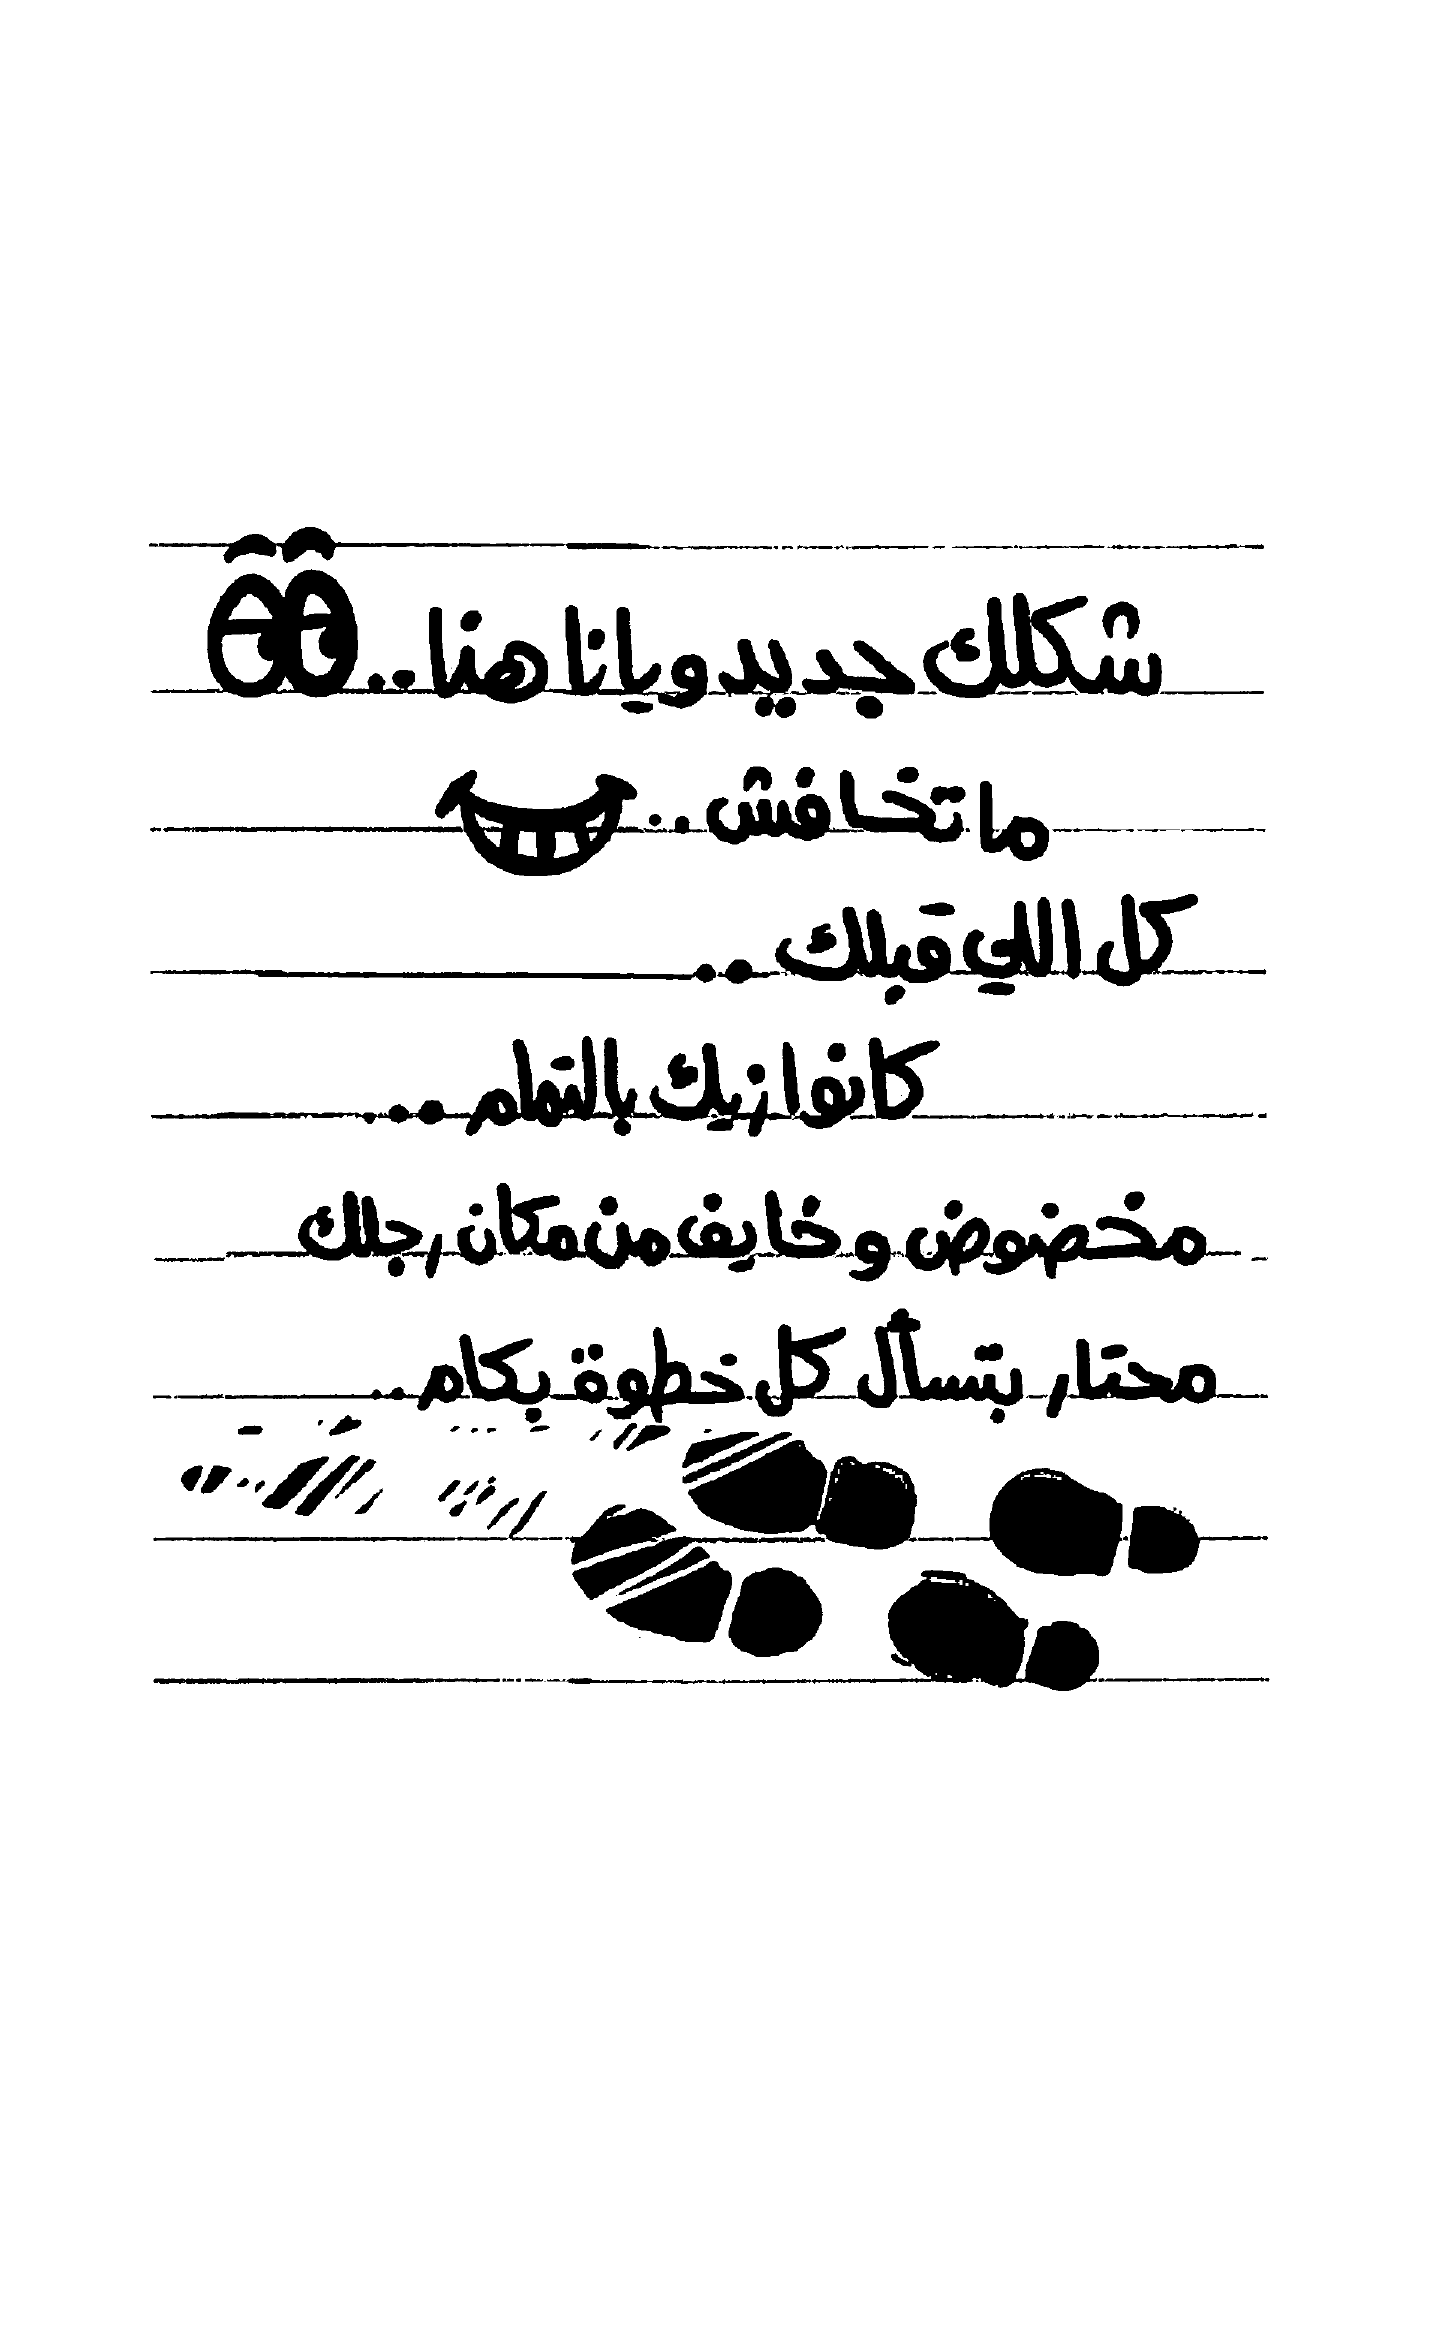 شكلك جديد ويانا هنا..
ما تخافش..
كل اللي قبلك ..
كانوا زيك بالتمام ...
مخضوض و خايف من مكان رجلك
محتار بتسأل كل خطوة بكام ..